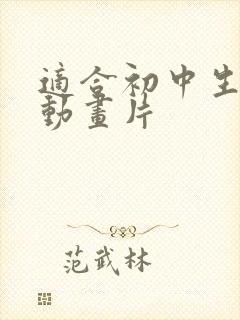 適合初中生
動畫片
范武林